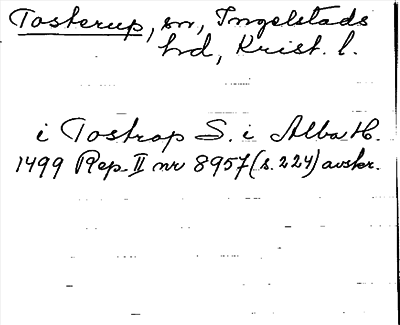 Tosterup, sn, Ingelstads
hd, Krist. l.
i Tostrop S. i Albo H.
1499 Rep. II nr 8957 (s. 224) avskr.